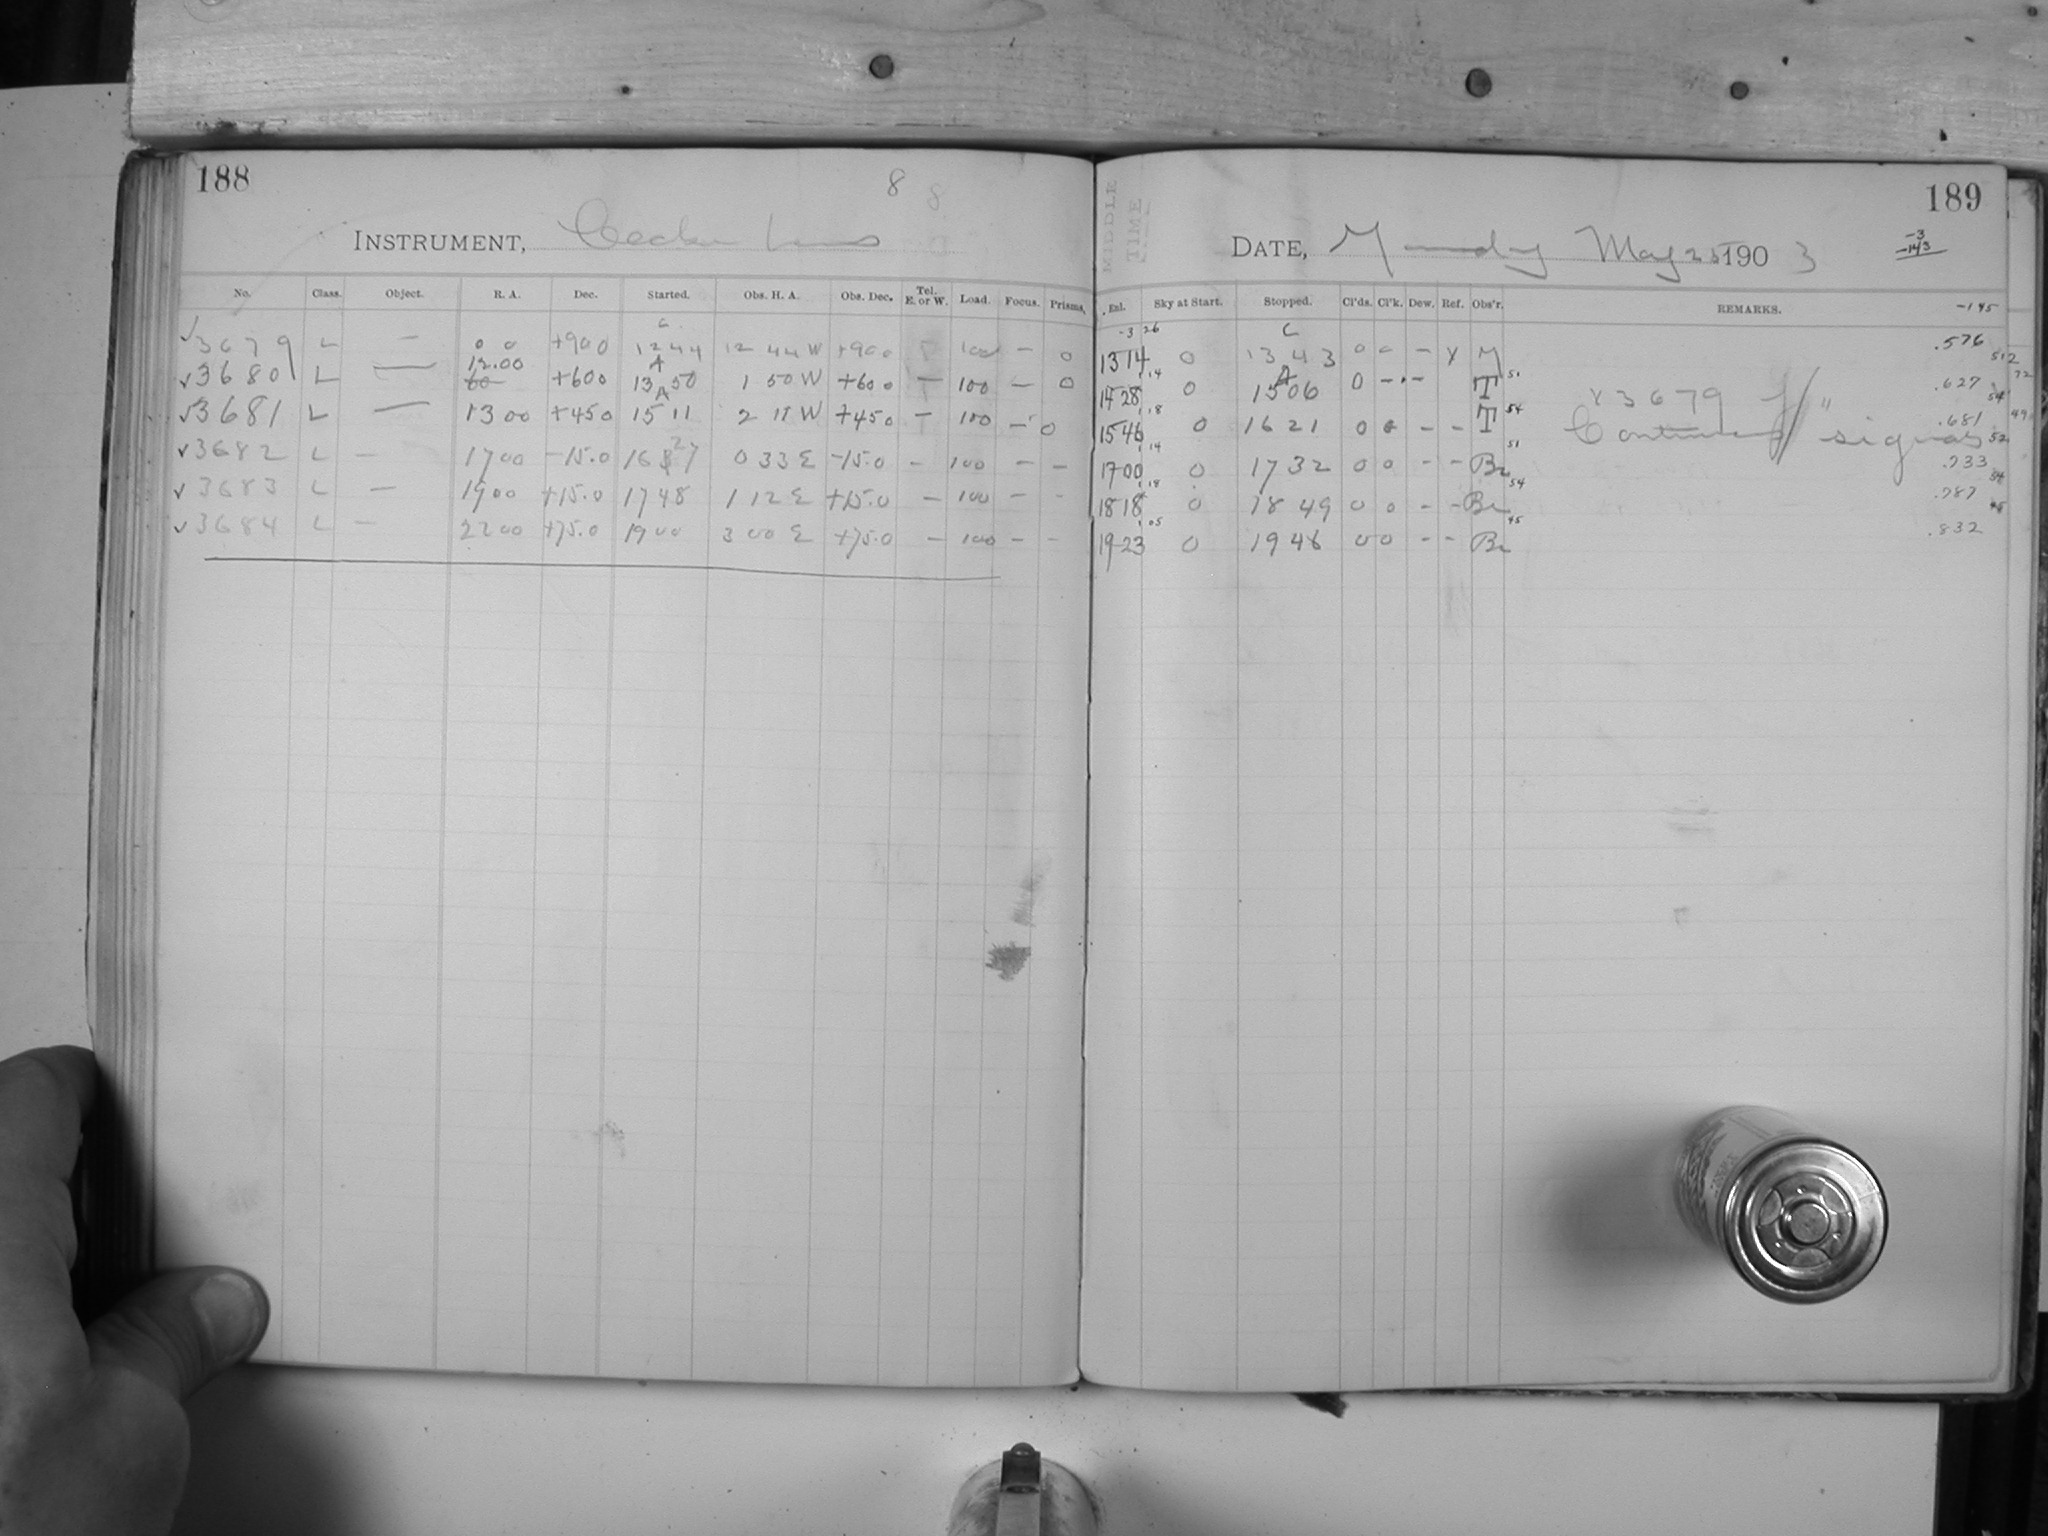 188
8 8
INSTRUMENT, Cooke Lens
No. Class. Object. R. A. Dec. Started. Obs. H. A. Obs. Dec. Tel. E. or W. Load. Focus. Prisms.
C
√3679 L — 0 0 +90 0 12 44 12 44 W +90 0 100 — 0
12.00 A
√3680 L — +60 0 13 50 1 50 W +60 0 — 100 — 0
A
√3681 L — 13 00 +45 0 15 11 2 11 W +45 0 — 100 — 0
√3682 L — 17 00 -15.0 16 27 0 33 E -15.0 — 100 — —
√3683 L — 19 00 +15.0 17 48 1 12 E +15.0 — 100 — -
√3684 L — 22 00 +75.0 19 00 3 00 E +75.0 — 100 — -
MIDDLE
TIME
189
DATE, Monday May 25 1903
-3
-143
Enl. Sky at Start. Stopped. Cl'ds. Cl'k. Dew. Ref. Obs'r. REMARKS. -145
-3 26 C .576
1314 0 13 43 0 0 — Y M 512
.14 A 51 .627 72
1428 0 1506 0 - - - T √3679 54
.18 54 .681 49
1546 0 1621 0 0 - - T Continuous signals 52
.14 51 .733
1700 0 1732 0 0 - - Br 54
.18 54 .787
1818 0 18 49 0 0 - - Br 45
.05 45 .832
1923 0 1946 0 0 - - Br